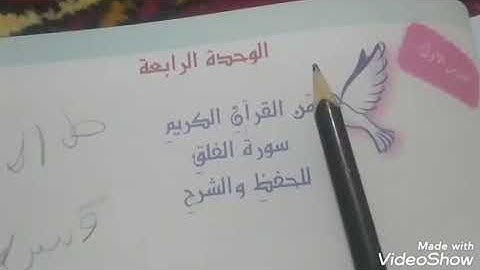 الوحدة الرابعة
من القرآن الكريم
سورة الفلق
للحفظ والشرح
Made with
VideoShow